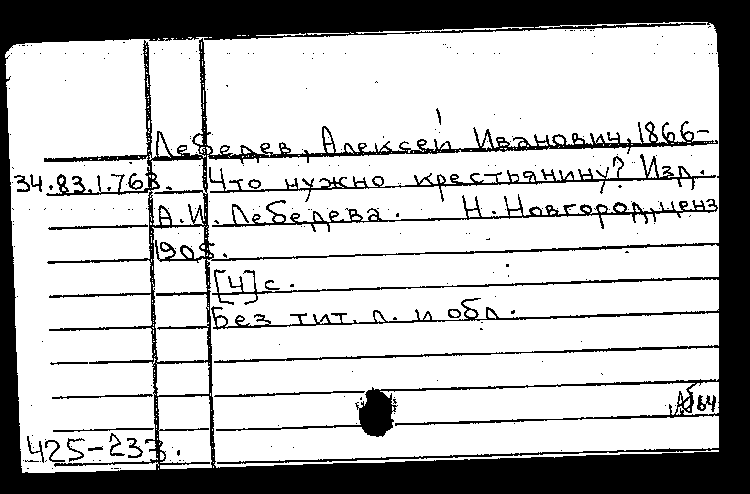 Лебедев, Алексей Иванович, 1866-
34.83.1.763. Что нужно крестьянину? Изд.
А.И. Лебедева. Н. Новгород, ценз
1905.
[4] с.
Без тит. л. и обл.
64
425-233.